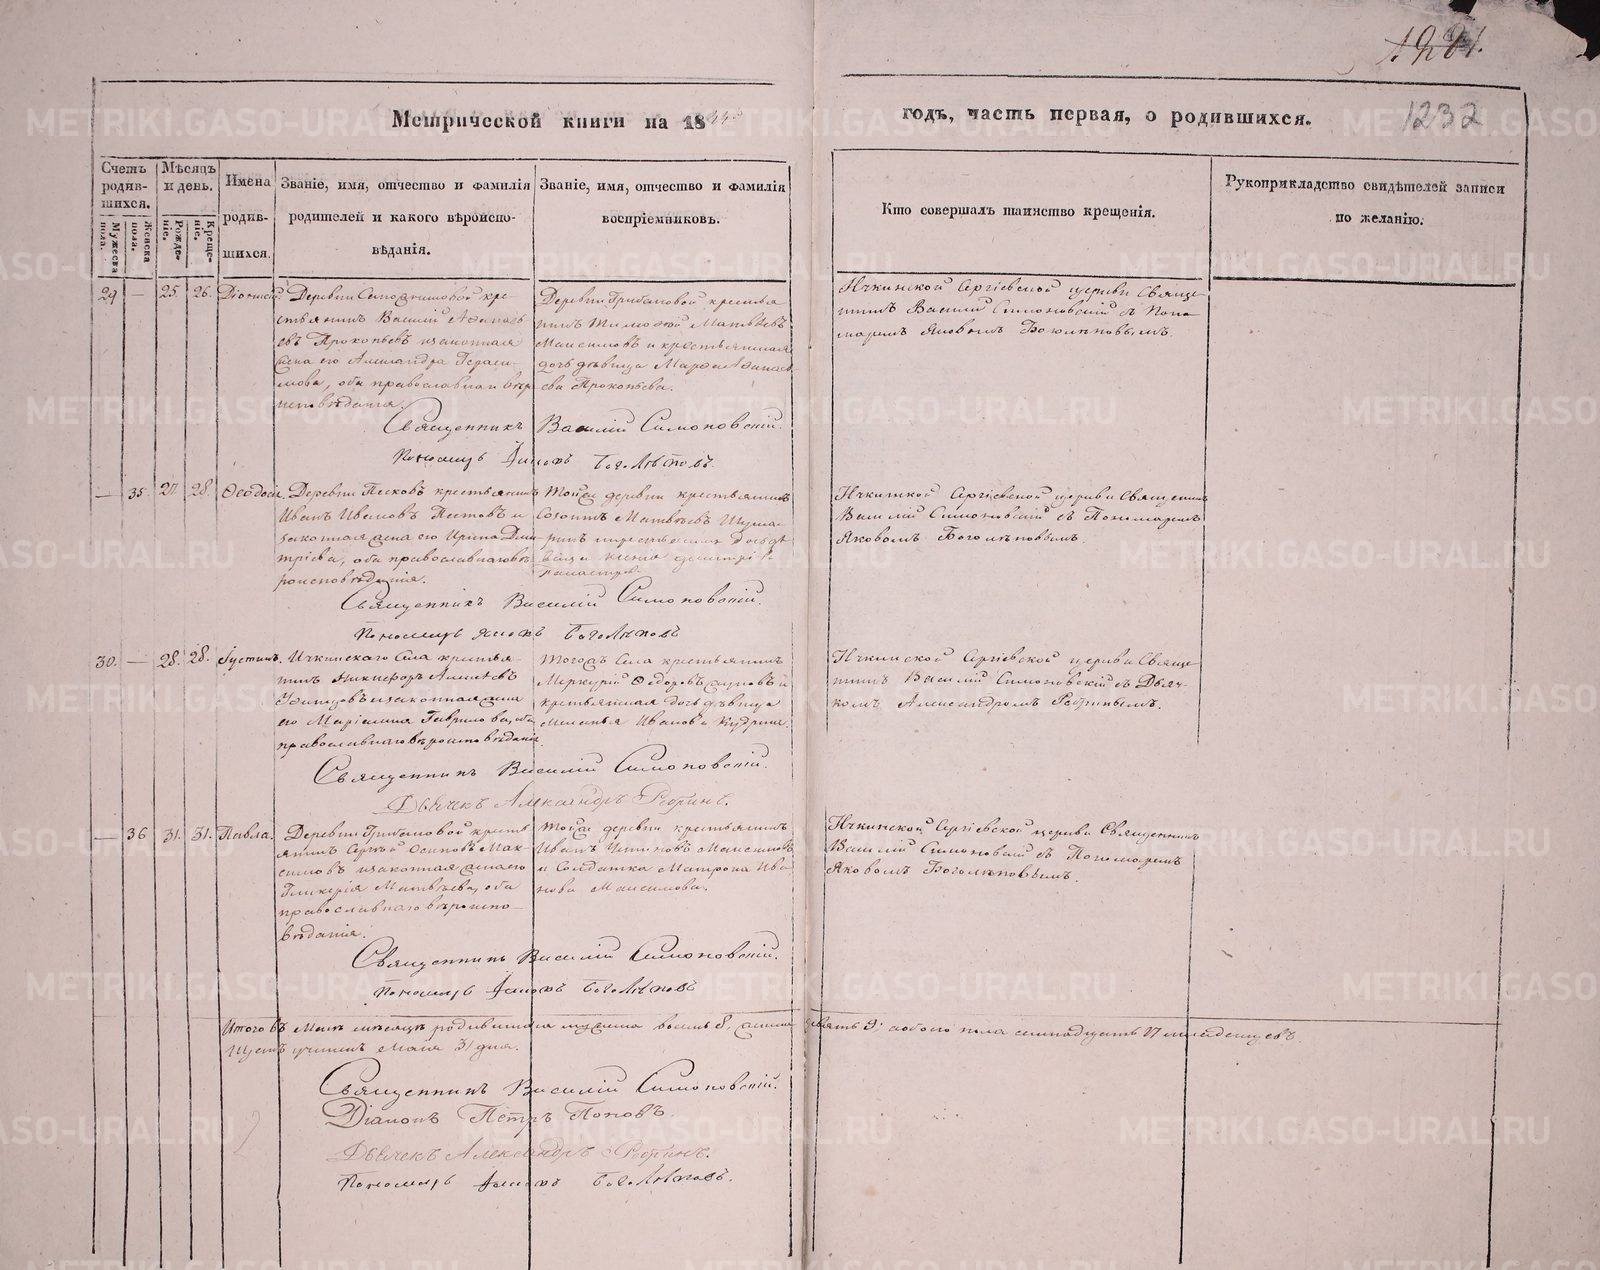 1232
Метрической книги на 18
годъ, часть первая, о родившихся.
Счетъ родив-шихся.
Мужеска пола.
Женска пола.
Мѣсяцъ и день.
Рожде-ніе.
Креще-ніе.
Имена родив-шихся.
Званіе, имя, отчество и фамилія
родителей и какого вѣроиспо-
вѣданія.
Званіе, имя, отчество и фамилія
воспріемниковъ.
Кто совершалъ таинство крещенія.
Рукоприкладство свидѣтелей записи
по желанію.
29 — 25. 26. Діонисій
Деревни кре-
стьянинъ Василій Аѳанась
евъ Прокопьевъ и законная
жена его Александра Гераси-
мова, оба православнаго вѣро
исповѣданія.
Деревни Грибановой крестья
нинъ Тимоѳей Матвѣевъ
Максимовъ и крестьянская
дочь дѣвица Марѳа Аѳанась
ева Прокопьева.
Ичкинской Сергіевской церкви Свяще-
нникъ Василій Симоновскій съ Поно
маремъ Яковомъ Боголѣповымъ.
Священникъ Василій Симоновскій.
Пономарь Яковъ Боголѣповъ.
— 35. 27. 28. Ѳеодосія.
Деревни Песковъ крестьянинъ
Иванъ Ивановъ Пестовъ и
законная жена его Ирина Дми
тріева, оба православнаго вѣ
роисповѣданія.
Тойже деревни крестьянинъ
Созонтъ Матвѣевъ
Ичкинской Сергіевской церкви Священникъ
Василій Симоновскій съ Пономаремъ
Яковомъ Боголѣповымъ.
Священникъ Василій Симоновскій.
Пономарь Яковъ Боголѣповъ
30. — 28. 28. Іустинъ.
Ичкинскаго Села крестья-
нинъ Никифоръ Алексѣевъ
и законная жена
его Маріамна Гаврилова, оба
православнаго вѣроисповѣданія.
Тогоже Села крестьянинъ
Меркурій Ѳедоровъ и
крестьянская дочь дѣвица
Меланья Иванова Кудрина.
Ичкинской Сергіевской церкви Свяще
нникъ Василій Симоновскій съ Дьяч-
комъ Александромъ Рѣбринымъ.
Священникъ Василій Симоновскій.
Дьячекъ Александръ
— 36 31. 31. Павла.
Деревни Грибановой кресть
янинъ Сергѣй Осиповъ Мак-
симовъ и законная жена его
Гликерія Матвѣева, оба
православнаго вѣроиспо-
вѣданія.
Тойже деревни крестьянинъ
Иванъ Максимовъ
и Солдатка Матрона Ива
нова Максимова.
Ичкинской Сергіевской церкви Священникъ
Василій Симоновскій съ Пономаремъ
Яковомъ Боголѣповымъ.
Священникъ Василій Симоновскій.
Пономарь Яковъ Боголѣповъ
Итого въ Маѣ мѣсяцѣ родившихся мужска восемь 8, женска девять 9. а обоего пола семнадцать 17 младенцевъ.
Щетъ учиненъ Мая 31 дня.
Священникъ Василій Симоновскій.
Діаконъ Петръ Поповъ.
Дьячекъ Александръ
Пономарь Яковъ Боголѣповъ.
METRIKI.GASO-URAL.RU